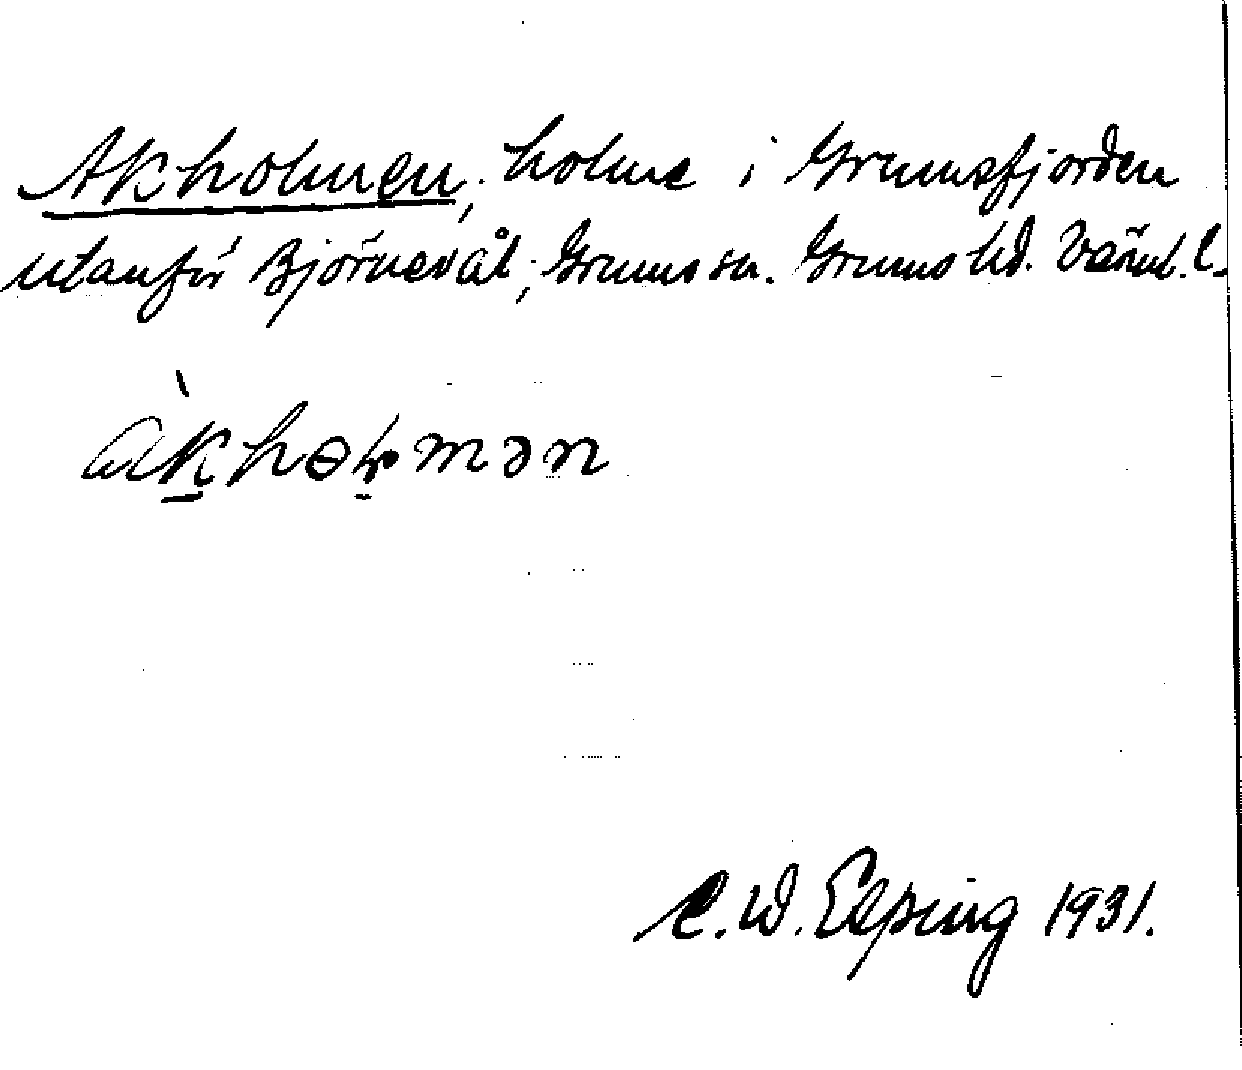 Akholmen, holme i Grumsfjorden
utanför Björnevål, Grums sn. Grums hd. Värml. l.
àkhɵlmən
C. W. Elping 1931.